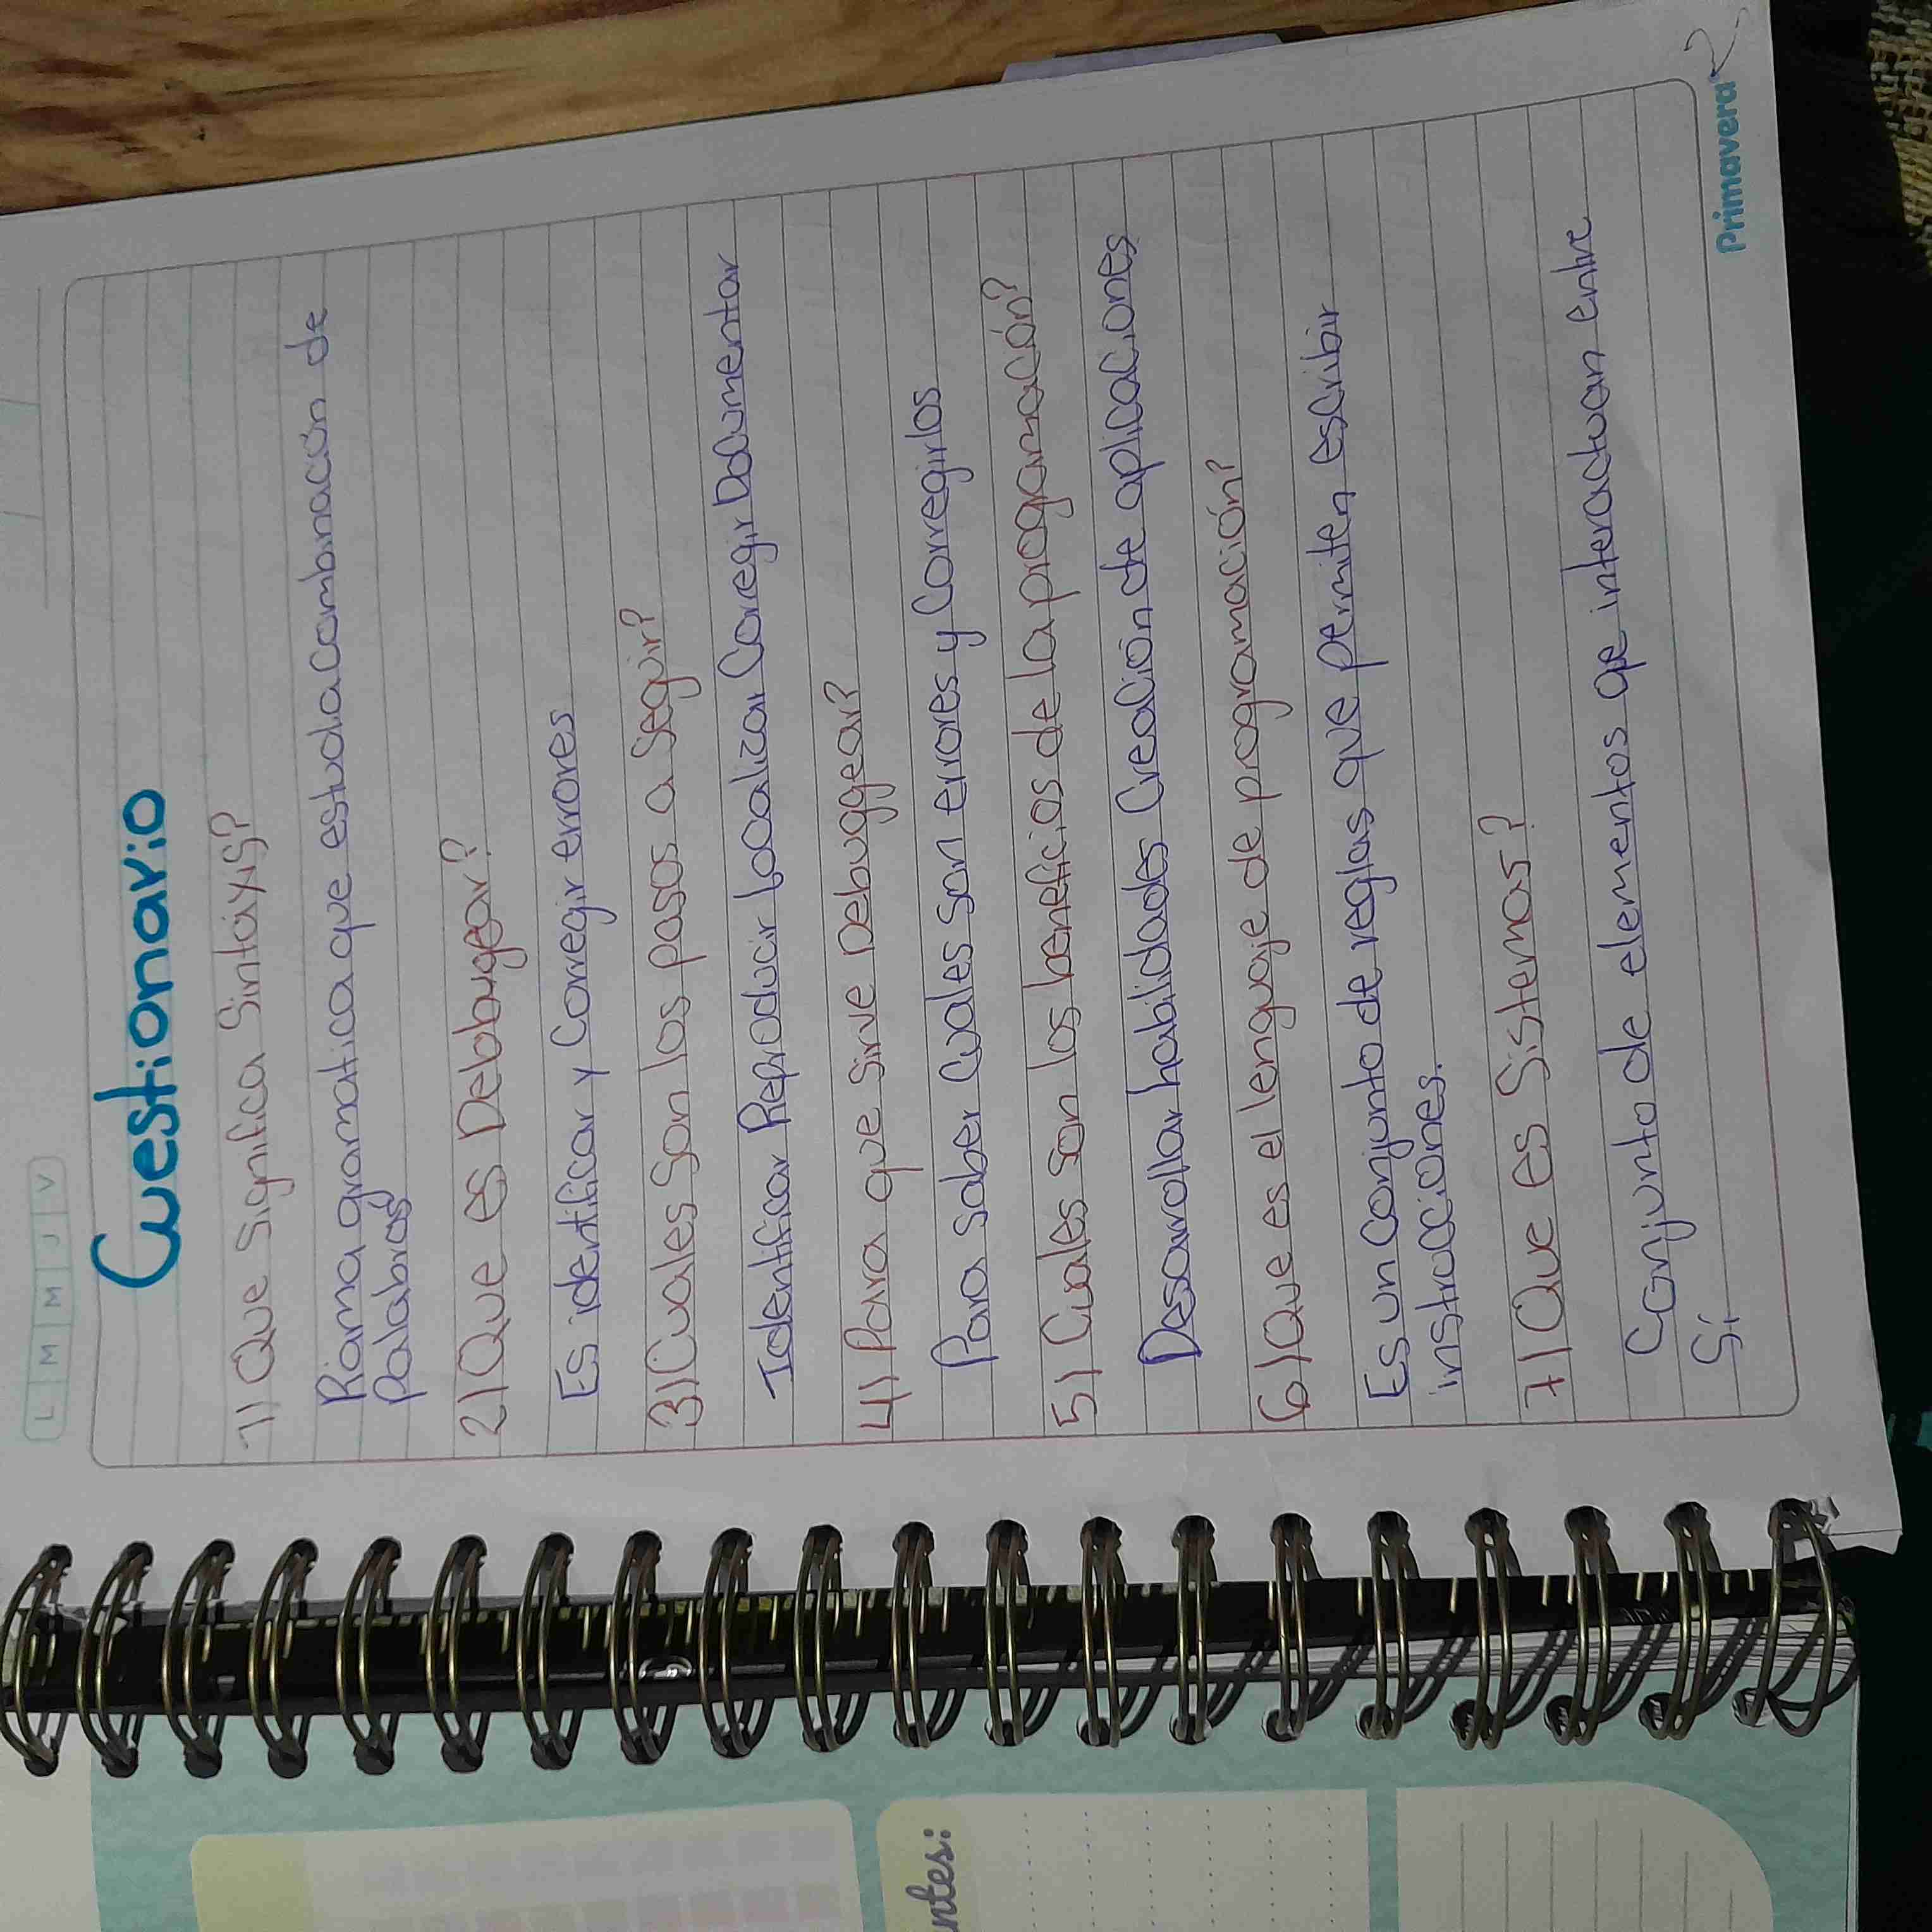 L M M J V
Cuestionario
1) Que significa Sintáxis?
Rama gramatica que estudia combinación de
palabras
2) Que es Debbugear?
Es identificar y Corregir errores
3) Cuales son los pasos a seguir?
Identificar Reproducir Localizar Corregir Documentar
4) Para que sirve Debuggear?
Para saber Cuales son errores y Corregirlos
5) Cuales son los beneficios de la programación?
Desarrollar habilidades Creación de aplicaciones
6) Que es el lenguaje de programación?
Es un Conjunto de reglas que permiten escribir
instrucciones.
7) Que es Sistemas?
Conjunto de elementos qe interactuan entre
Sí
Primavera
2
ntes: